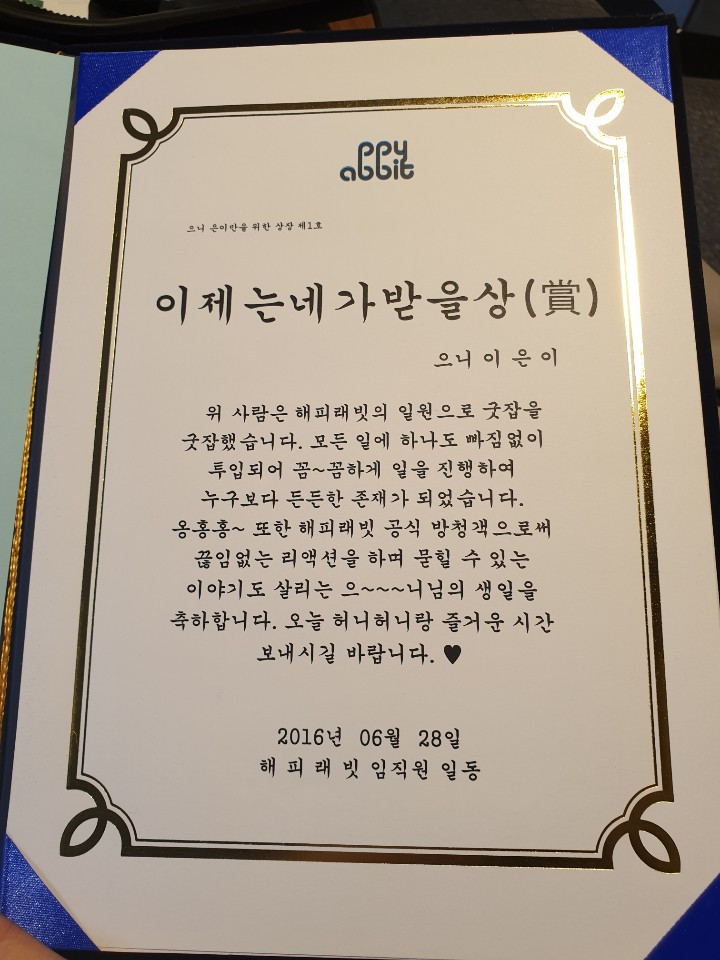 ppy
abbit
으니 은이만을 위한 상장 제1호
이제는네가받을상(賞)
으니 이 은 이
위 사람은 해피래빗의 일원으로 굿잡을
굿잡했습니다. 모든 일에 하나도 빠짐없이
투입되어 꼼~꼼하게 일을 진행하여
누구보다 든든한 존재가 되었습니다.
옹홍홍~ 또한 해피래빗 공식 방청객으로써
끊임없는 리액션을 하며 묻힐 수 있는
이야기도 살리는 으~~~니님의 생일을
축하합니다. 오늘 허니허니랑 즐거운 시간
보내시길 바랍니다. ♥
2016년 06월 28일
해 피 래 빗 임직원 일동